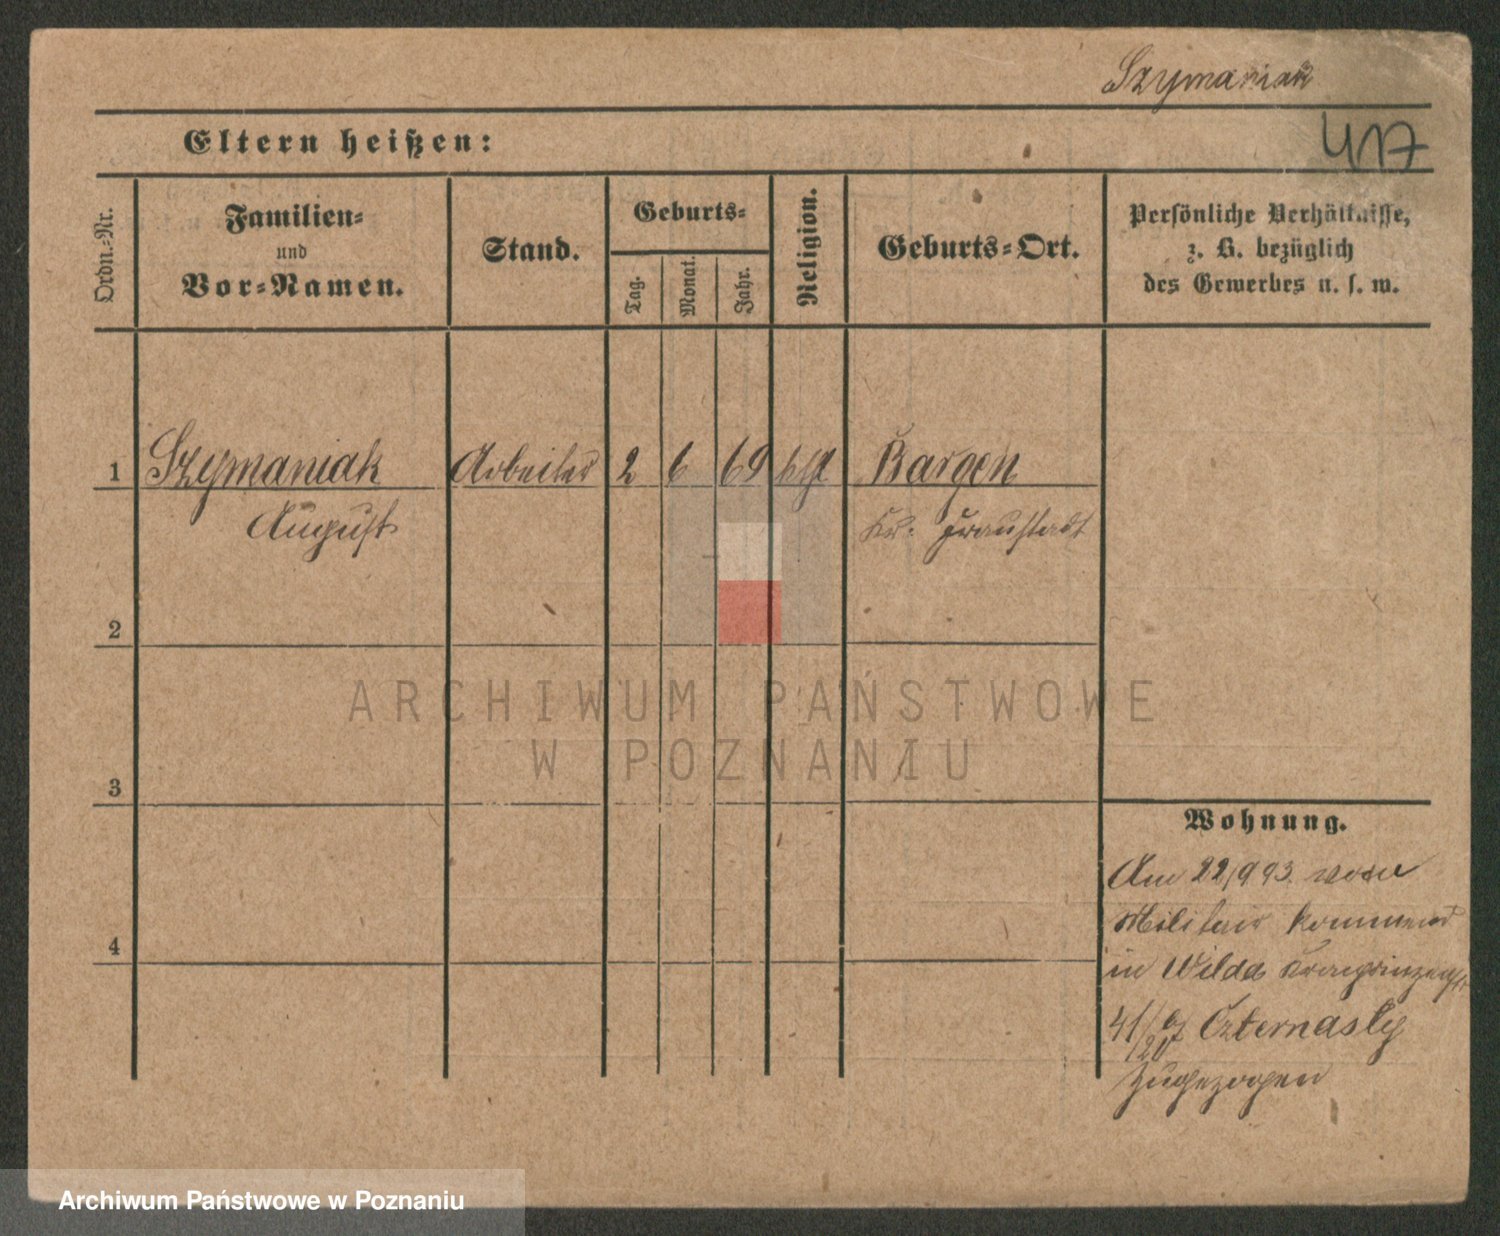 Szymaniak
417
Eltern heißen:
Ordn.-Nr.
Familien-
und
Vor-Namen.
Stand.
Geburts-
Tag.
Monat.
Jahr.
Religion.
Geburts-Ort.
Persönliche Verhältnisse,
z. B. bezüglich
des Gewerbes u. s. w.
1 Szymaniak Arbeiter 2 6 69 kth Bargen
August Kr. Fraustadt
2
ARCHIWUM PAŃSTWOWE
W POZNANIU
3
Wohnung.
Am 22/9 93. vom
Militair kommend
4
in Wilda Kronprinzenstr
41/20 bei Czternasty
zugezogen
Archiwum Państwowe w Poznaniu